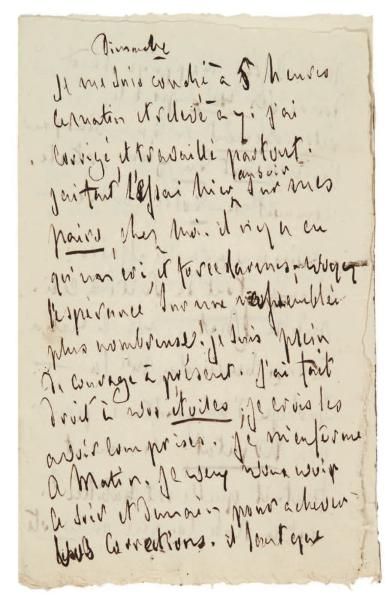 Dimanche
Je me suis couché à 5 heures
du matin et relevé à 7. j'ai
corrigé et travaillé partout.
j'ai fait l'essai hier au soir sur mes
pairs, chez moi. il n'y a eu
qu'un cri et force larmes,
l'espérance sur une assemblée
plus nombreuse! je suis plein
de courage à présent. J'ai fait
droit à vos étoiles, je crois les
avoir comprises. Je m'enferme
ce matin. Je veux vous voir
ce soir et demain pour achever
corrections. il faut que